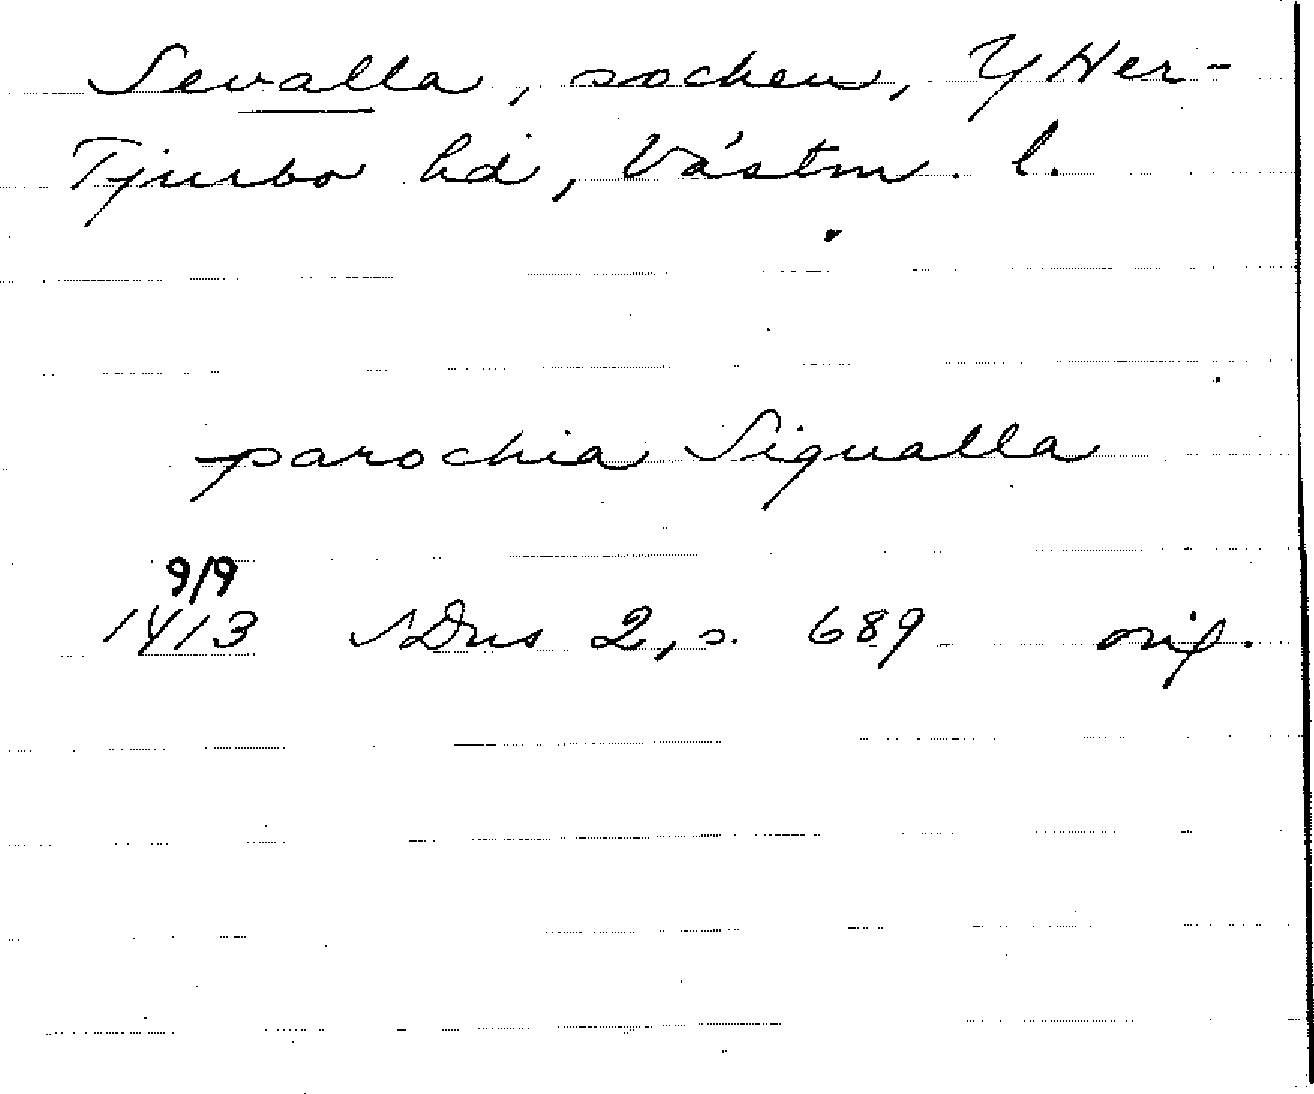 Sevalla, socken, YHer-
Tjurbo hd, Västm. l.
parochia Siqualla
9/9
1413 SDns 2, s. 689 orig.